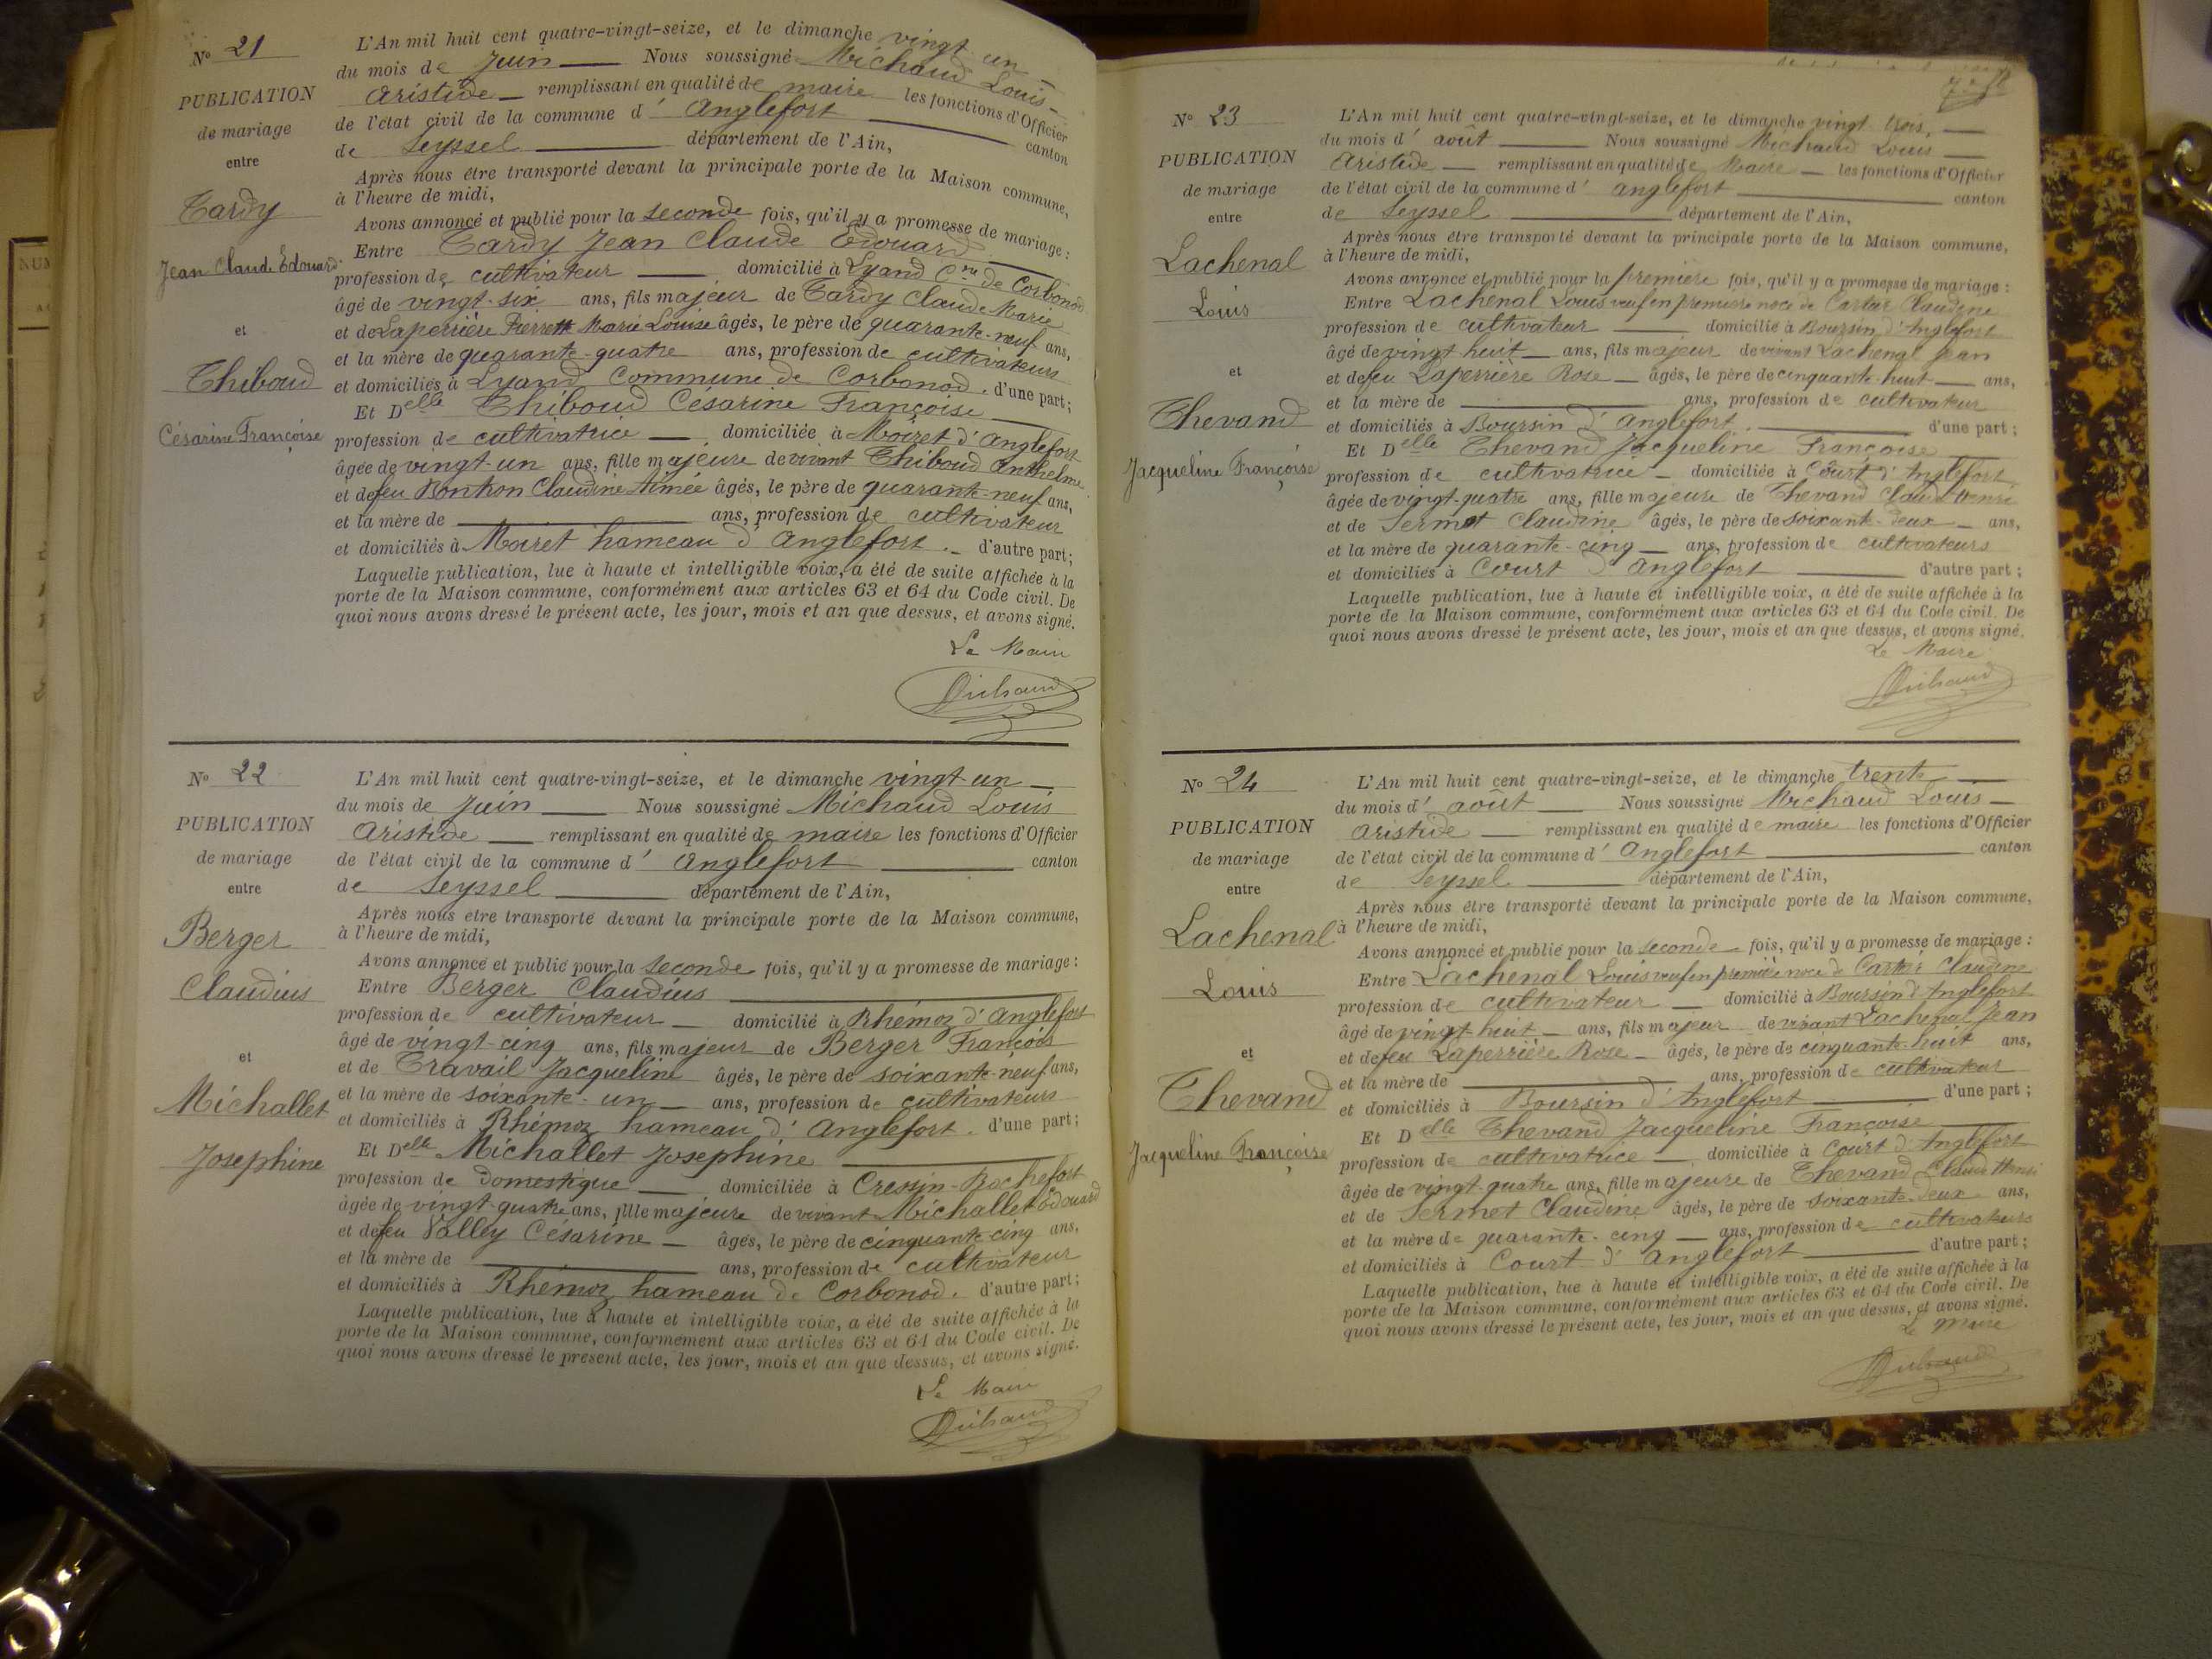 N° 21
PUBLICATION
de mariage
entre
Tardy
Jean Claude Edouard
et
Thiboud
Césarine Françoise
L'An mil huit cent quatre-vingt-seize, et le dimanche vingt-un
du mois de Juin Nous soussigné Michaud Louis
Aristide remplissant en qualité de maire les fonctions d'Officier
de l'état civil de la commune d' Anglefort canton
de Seyssel département de l'Ain,
Après nous être transporté devant la principale porte de la Maison commune,
à l'heure de midi,
Avons annoncé et publié pour la seconde fois, qu'il y a promesse de mariage :
Entre Tardy Jean Claude Edouard
profession de cultivateur domicilié à Lyand Cne de Corbonod
âgé de vingt-six ans, fils majeur de Tardy Claude Marie
et de Laperrière Pierrette Marie Louise âgés, le père de quarante-neuf ans,
et la mère de quarante-quatre ans, profession de cultivateurs
et domiciliés à Lyand Commune de Corbonod. d'une part ;
Et Delle Thiboud Césarine Françoise
profession de cultivatrice domiciliée à Moiret d'Anglefort
âgée de vingt-un ans, fille majeure de vivant Thiboud Anthelme
et de feu Bonhon Claudine Aimée âgés, le père de quarante-neuf ans,
et la mère de ans, profession de cultivateur
et domiciliés à Moiret hameau d'Anglefort. d'autre part ;
Laquelle publication, lue à haute et intelligible voix, a été de suite affichée à la
porte de la Maison commune, conformément aux articles 63 et 64 du Code civil. De
quoi nous avons dressé le présent acte, les jour, mois et an que dessus, et avons signé.
Le Maire
Michaud
N° 22
PUBLICATION
de mariage
entre
Berger
Claudius
et
Michallet
Josephine
L'An mil huit cent quatre-vingt-seize, et le dimanche vingt-un
du mois de Juin Nous soussigné Michaud Louis
Aristide remplissant en qualité de maire les fonctions d'Officier
de l'état civil de la commune d' Anglefort canton
de Seyssel département de l'Ain,
Après nous être transporté devant la principale porte de la Maison commune,
à l'heure de midi,
Avons annoncé et publié pour la seconde fois, qu'il y a promesse de mariage :
Entre Berger Claudius
profession de cultivateur domicilié à Rhémoz d'Anglefort
âgé de vingt-cinq ans, fils majeur de Berger François
et de Travail Jacqueline âgés, le père de soixante-neuf ans,
et la mère de soixante-un ans, profession de cultivateurs
et domiciliés à Rhémoz hameau d'Anglefort. d'une part ;
Et Delle Michallet Josephine
profession de Domestique domiciliée à Cressin-Rochefort
âgée de vingt-quatre ans, fille majeure de vivant Michallet Edouard
et de feu Valley Césarine âgés, le père de cinquante-cinq ans,
et la mère de ans, profession de cultivateur
et domiciliés à Rhémoz hameau de Corbonod. d'autre part ;
Laquelle publication, lue à haute et intelligible voix, a été de suite affichée à la
porte de la Maison commune, conformément aux articles 63 et 64 du Code civil. De
quoi nous avons dressé le présent acte, les jour, mois et an que dessus, et avons signé.
Le Maire
Michaud
N° 23
PUBLICATION
de mariage
entre
Lachenal
Louis
et
Thevand
Jacqueline Françoise
L'An mil huit cent quatre-vingt-seize, et le dimanche vingt trois,
du mois d' août Nous soussigné Michaud Louis
Aristide remplissant en qualité de Maire les fonctions d'Officier
de l'état civil de la commune d' Anglefort canton
de Seyssel département de l'Ain,
Après nous être transporté devant la principale porte de la Maison commune,
à l'heure de midi,
Avons annoncé et publié pour la première fois, qu'il y a promesse de mariage :
Entre Lachenal Louis veuf en première noce de Cartier Claudine
profession de cultivateur domicilié à Boursin d'Anglefort
âgé de vingt-huit ans, fils majeur de vivant Lachenal Jean
et de feu Laperrière Rose âgés, le père de cinquante-huit ans,
et la mère de ans, profession de cultivateur
et domiciliés à Boursin d'Anglefort. d'une part ;
Et Delle Thevand Jacqueline Françoise
profession de cultivatrice domiciliée à Court d'Anglefort
âgée de vingt-quatre ans, fille majeure de Thevand Claude Henri
et de Sermet Claudine âgés, le père de soixante-deux ans,
et la mère de quarante-cinq ans, profession de cultivateurs
et domiciliés à Court d'Anglefort d'autre part ;
Laquelle publication, lue à haute et intelligible voix, a été de suite affichée à la
porte de la Maison commune, conformément aux articles 63 et 64 du Code civil. De
quoi nous avons dressé le présent acte, les jour, mois et an que dessus, et avons signé.
Le Maire
Michaud
N° 24
PUBLICATION
de mariage
entre
Lachenal
Louis
et
Thevand
Jacqueline Françoise
L'An mil huit cent quatre-vingt-seize, et le dimanche trente
du mois d' août Nous soussigné Michaud Louis
Aristide remplissant en qualité de maire les fonctions d'Officier
de l'état civil de la commune d' Anglefort canton
de Seyssel département de l'Ain,
Après nous être transporté devant la principale porte de la Maison commune,
à l'heure de midi,
Avons annoncé et publié pour la seconde fois, qu'il y a promesse de mariage :
Entre Lachenal Louis veuf en première noce de Cartier Claudine
profession de cultivateur domicilié à Boursin d'Anglefort
âgé de vingt-huit ans, fils majeur de vivant Lachenal Jean
et de feu Laperrière Rose âgés, le père de cinquante-huit ans,
et la mère de ans, profession de cultivateur
et domiciliés à Boursin d'Anglefort d'une part ;
Et Delle Thevand Jacqueline Françoise
profession de cultivatrice domiciliée à Court d'Anglefort
âgée de vingt-quatre ans, fille majeure de Thevand Claude Henri
et de Sermet Claudine âgés, le père de soixante-deux ans,
et la mère de quarante-cinq ans, profession de cultivateurs
et domiciliés à Court d'Anglefort d'autre part ;
Laquelle publication, lue à haute et intelligible voix, a été de suite affichée à la
porte de la Maison commune, conformément aux articles 63 et 64 du Code civil. De
quoi nous avons dressé le présent acte, les jour, mois et an que dessus, et avons signé.
Le Maire
Michaud